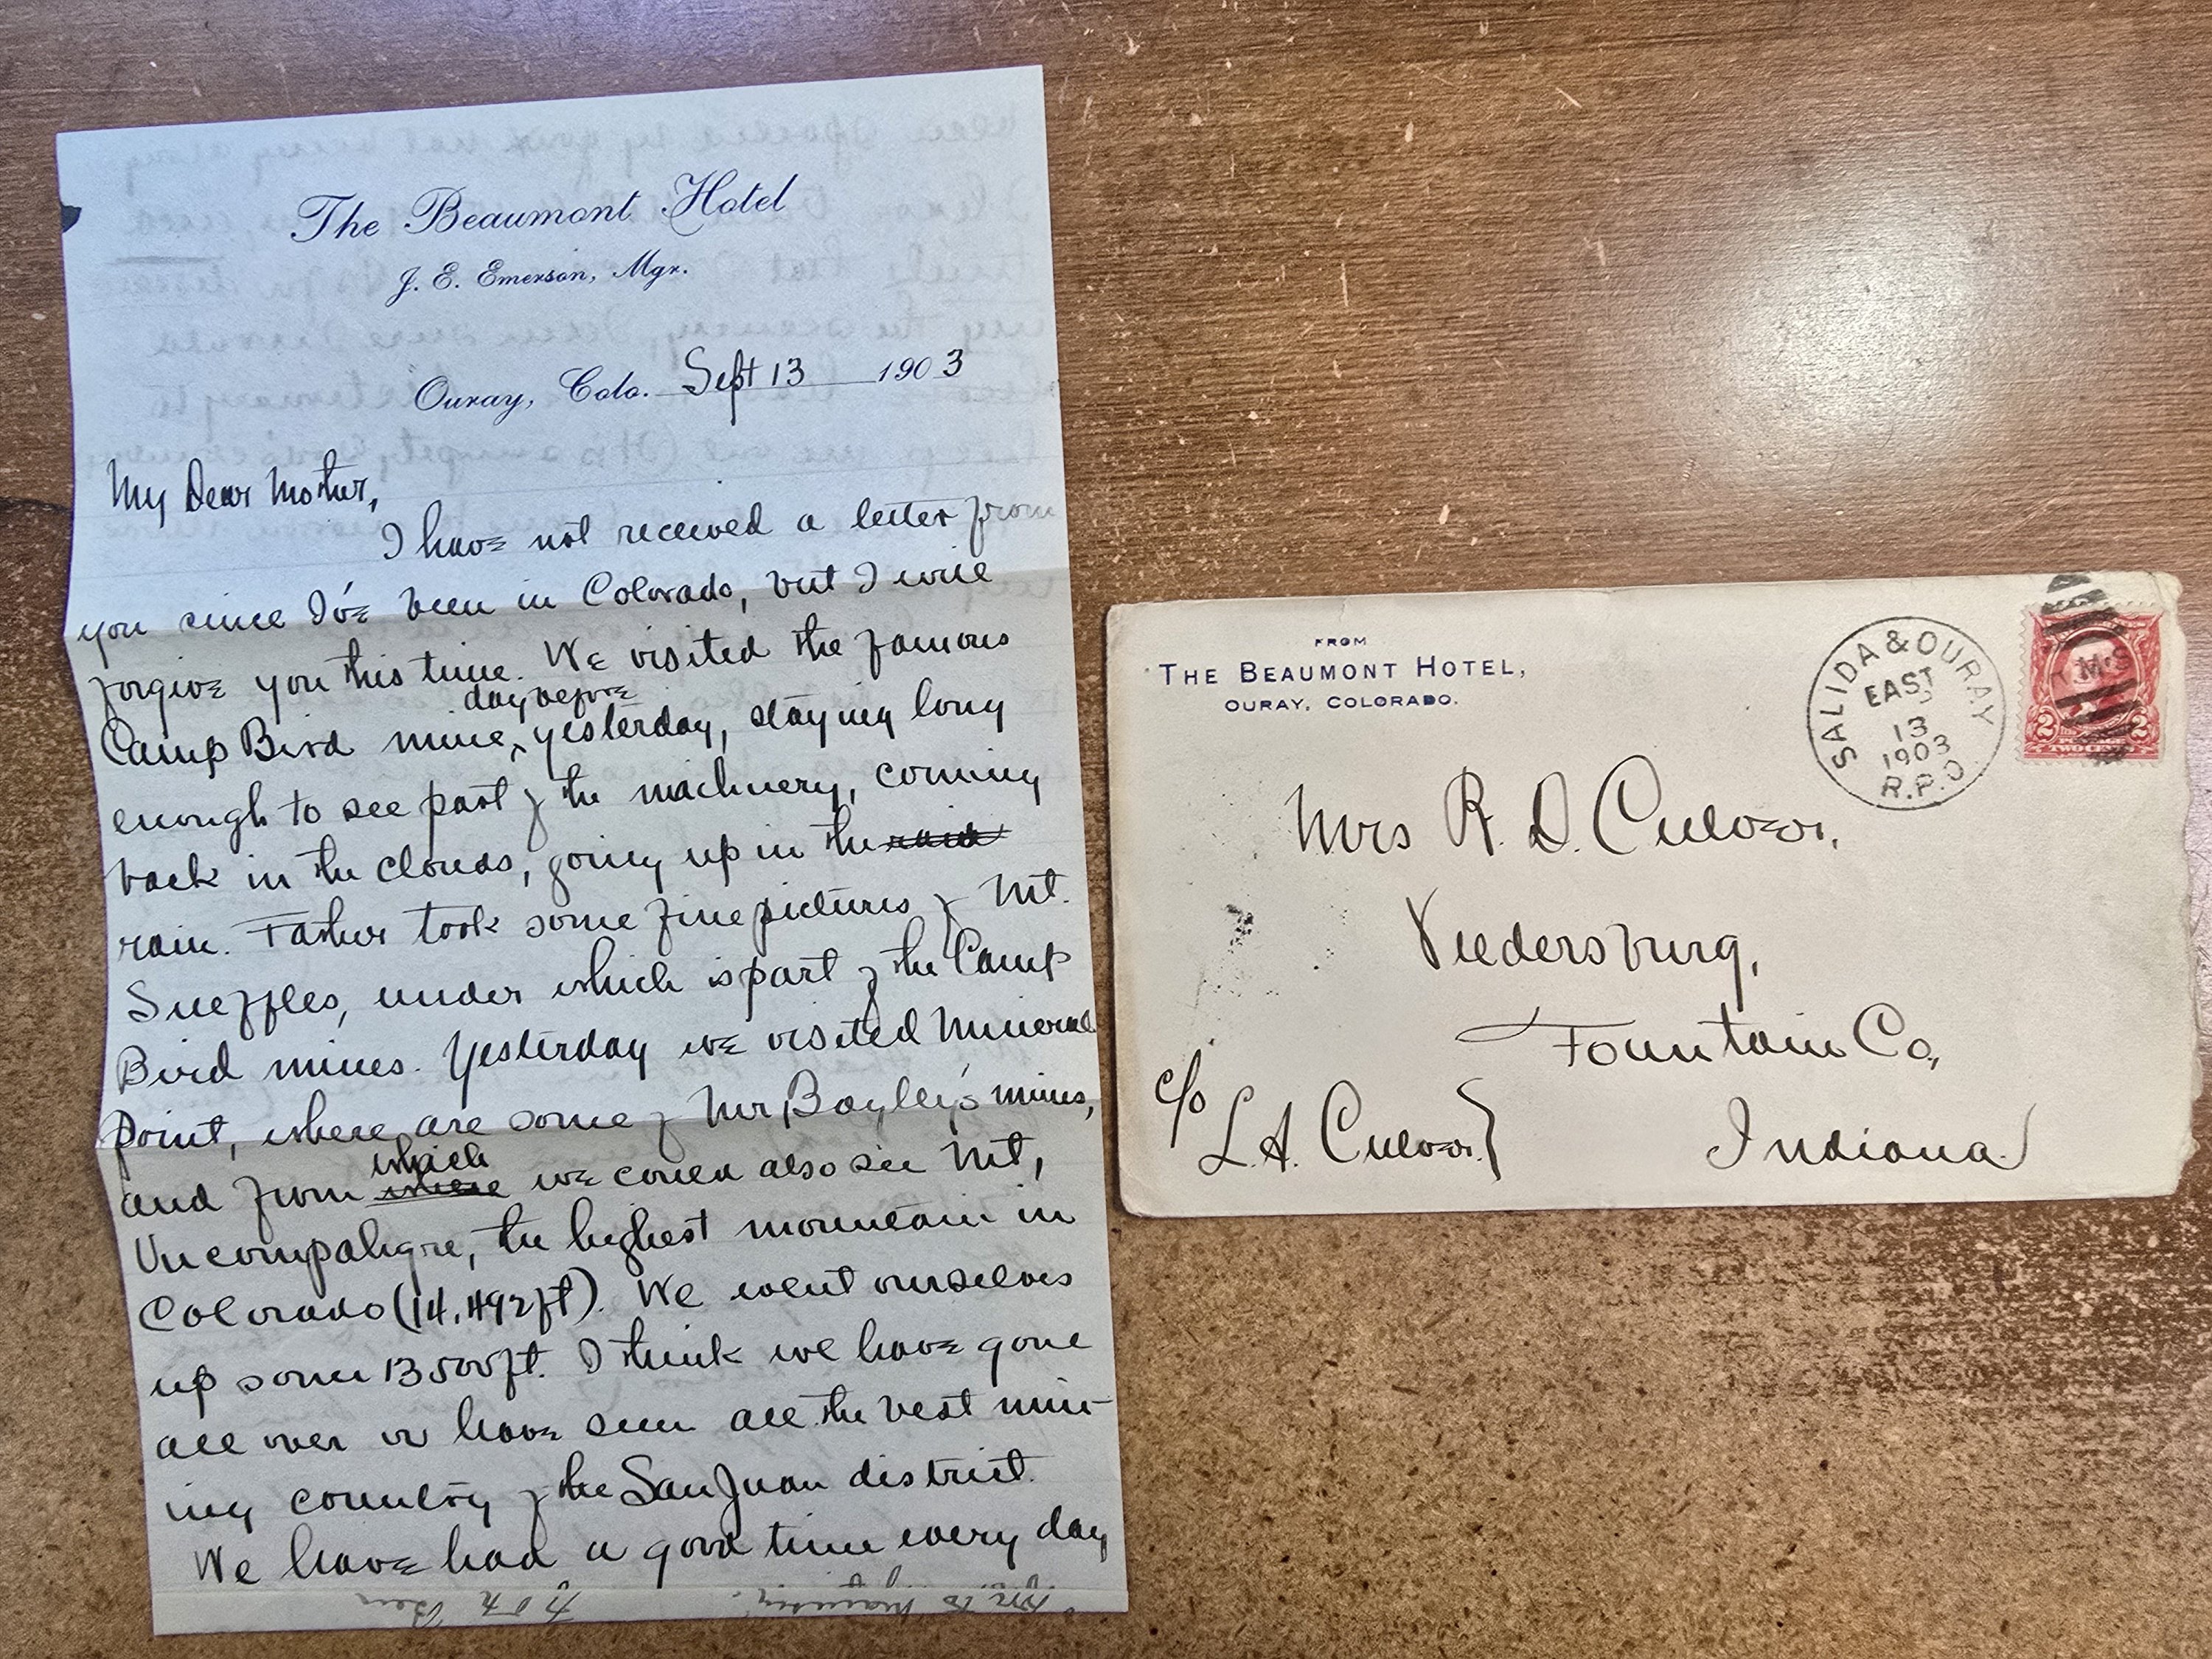 The Beaumont Hotel
J. E. Emerson, Mgr.
Ouray, Colo. Sept 13 1903
My Dear Mother,
I have not received a letter from
you since I've been in Colorado, but I will
forgive you this time. We visited the famous
day before
Camp Bird mine, ‸ yesterday, staying long
enough to see part of the machinery, coming
back in the clouds, going up in the
rain. Father took some fine pictures of Mt.
Sneffles, under which is part of the Camp
Bird mines. Yesterday we visited Mineral
Point, where are some of Mr Bayley's mines,
which
and from where we could also see Mt,
Uncompahgre, the highest mountain in
Colorado (14,492ft). We went ourselves
up some 13500ft. I think we have gone
all over or have seen all the best min-
ing country of the San Juan district.
We have had a good time every day
FROM
THE BEAUMONT HOTEL,
OURAY, COLORADO.
SALIDA & OURAY
EAST
13
1903
R.P.O.
R.M.S
2 2
POSTAGE
TWO CENTS
Mrs R. D. Culver,
Veedersburg,
Fountain Co,
Indiana
c/o
L. A. Culver.}